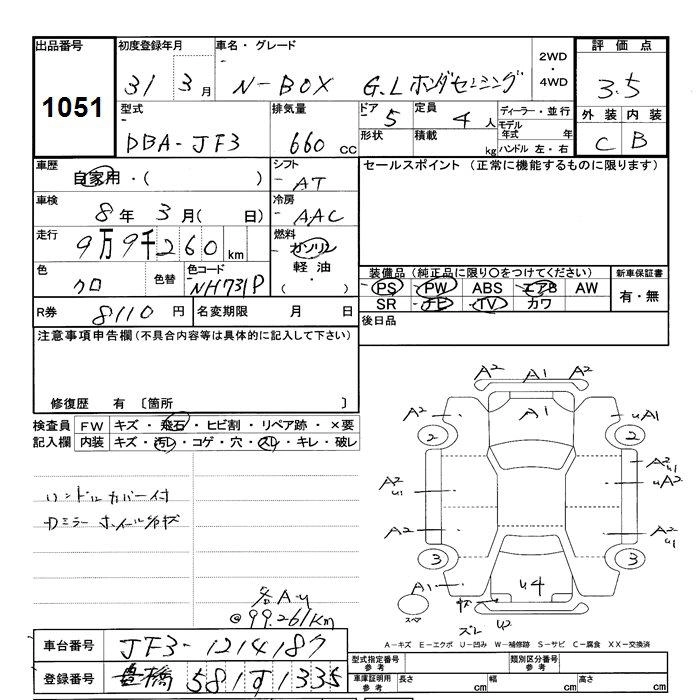 出品番号 初度登録年月 車名・グレード 2WD・4WD 評価点
1051 31 3月 N-BOX G.Lホンダセンシング 3.5
型式 排気量 ドア 5 定員 4人 ディーラー・並行 外装 内装
DBA-JF3 660cc 形状 積載 kg モデル年式 年 ハンドル 左・右 C B
車歴 自家用・( ) シフト AT セールスポイント(正常に機能するものに限ります)
車検 8年 3月( 日) 冷房 AAC
走行 9万9千260km 燃料 ガソリン 軽油 ( ・ )
色 クロ 色替 色コード NH731P
装備品(純正品に限り○をつけてください) 新車保証書
PS PW ABS エアB AW 有・無
SR ナビ TV カワ
R券 8110円 名変期限 月 日 後日品
注意事項申告欄(不具合内容等は具体的に記入して下さい)
修復歴 有 〔箇所 〕
検査員 FW キズ・飛石・ヒビ割・リペア跡・×要
記入欄 内装 キズ・汚レ・コゲ・穴・スレ・キレ・破レ
ハンドルカバー付
カミラー ホイール各状
各A.u
@99.261Km
A2 A1 A2
A2 A1 uA1
2 2
A2 u1 A2 u1 uA2
A2 A2 u1
3 3
A1 u4
スペア ズレ u2
A-キズ E-エクボ U-凹み W-補修跡 S-サビ C-腐食 XX-交換済
車台番号 JF3-1214187
登録番号 豊橋 581す1335
型式指定番号 参考 類別区分番号 参考
車庫証明用 参考 長さ cm 幅 cm 高さ cm